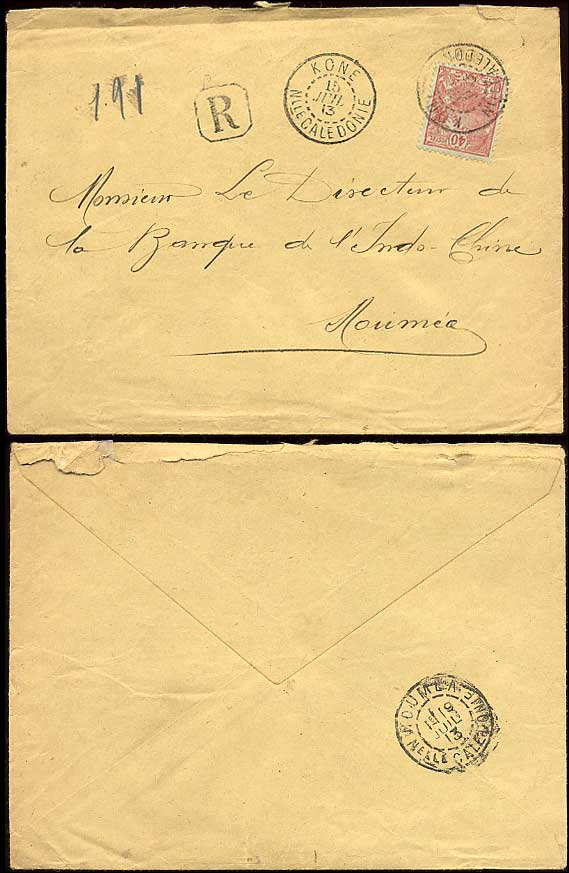 191
R
KONE
15
JUIL
13
NLLE CALEDONIE
40
Monsieur Le Directeur de
la Banque de l'Indo-Chine
Nouméa
NOUMEA
19
JUIL
13
NELLE CALEDONIE